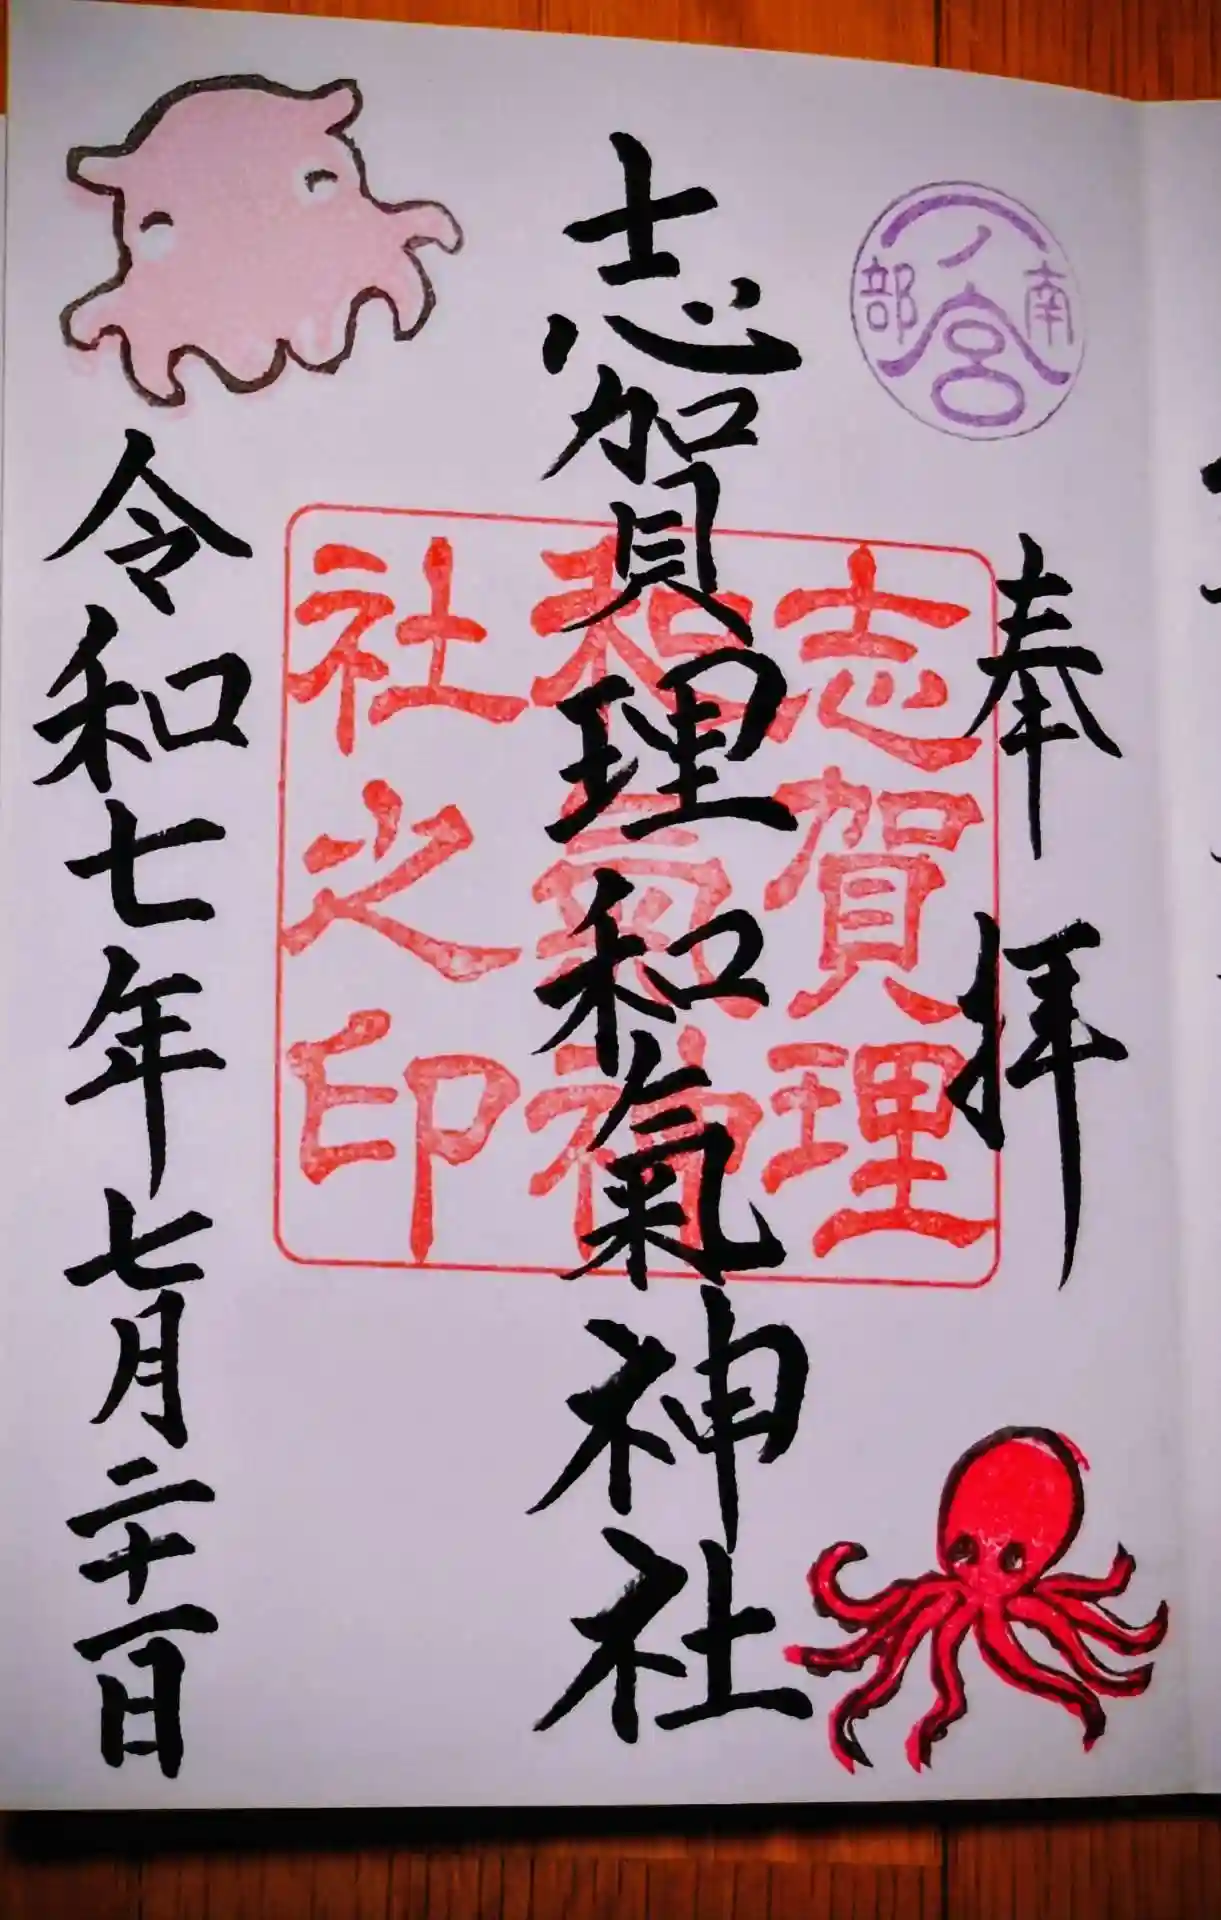 奉拝
南部
一ノ宮
志賀理和氣神社
志賀理
和氣神
社之印
令和七年七月二十一日